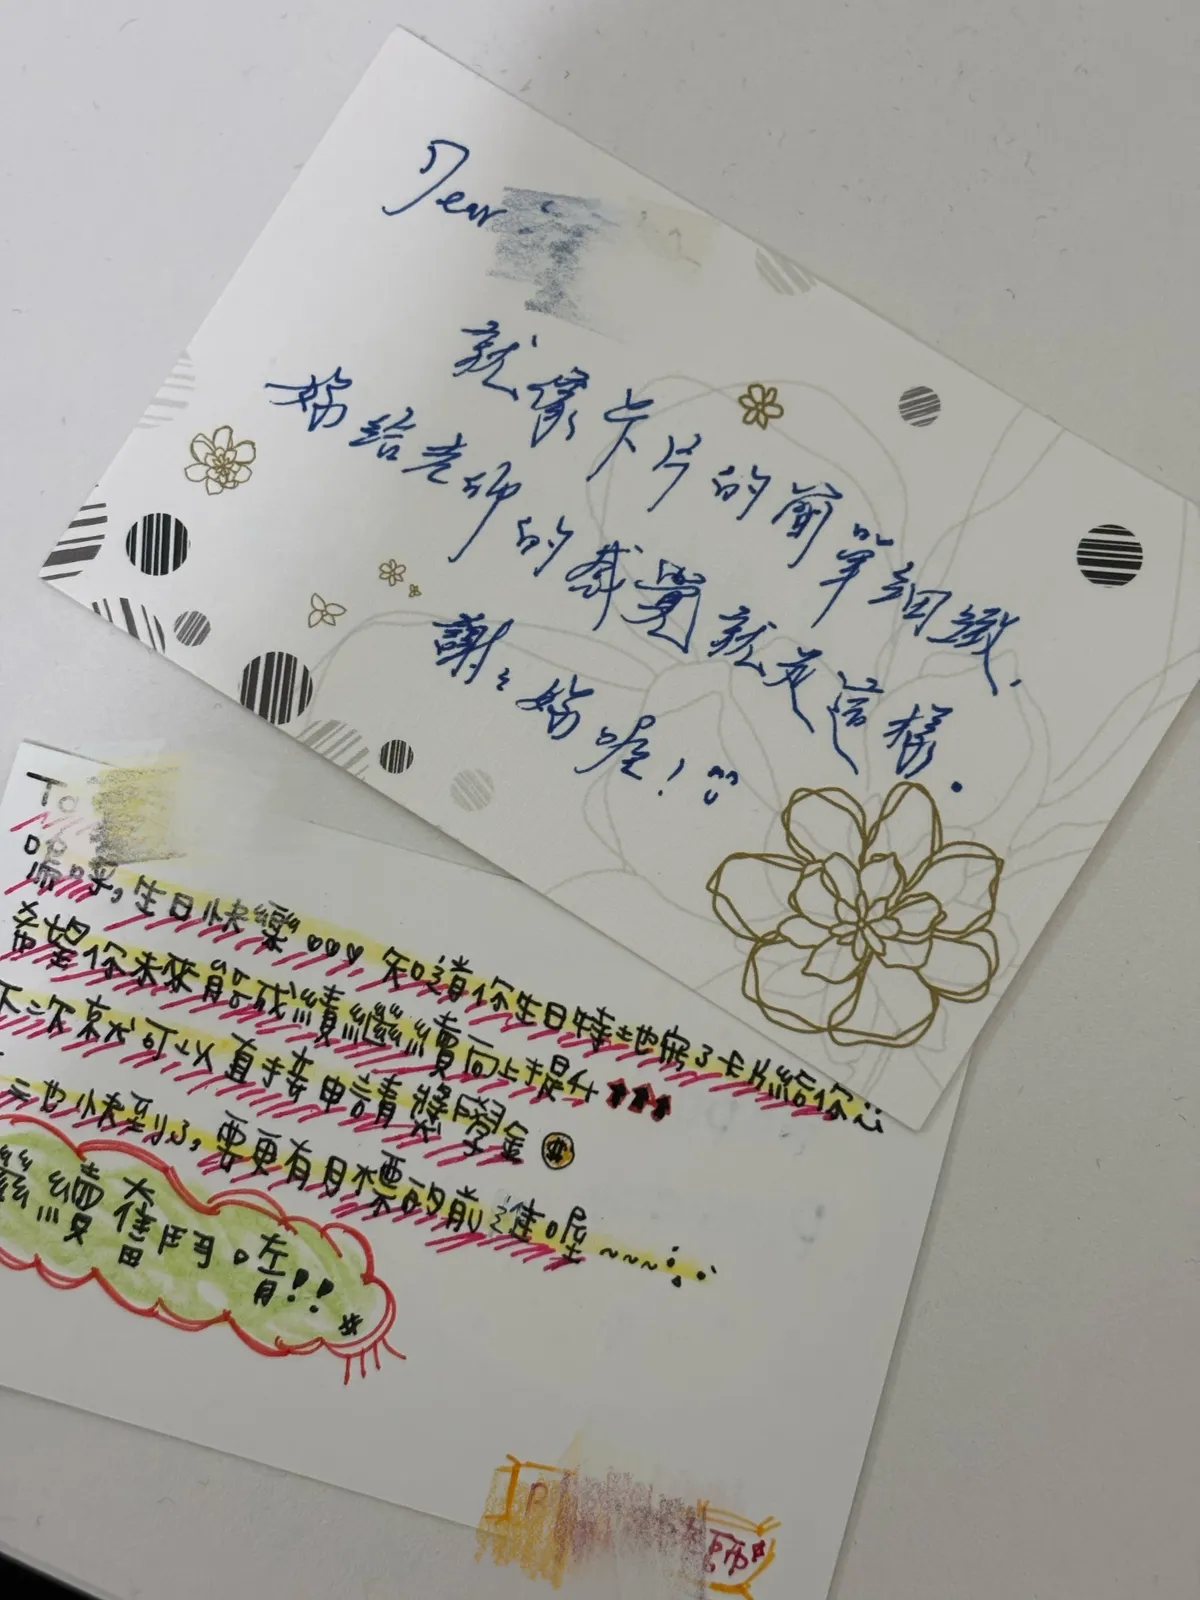 Dear
就像卡片的簡單細緻.
妳給老師的感覺就是這樣.
謝謝妳喔!
To
嗚呼,生日快樂 知道你生日特地寫了卡片給你
希望你未來能成績繼續向上提升
下次就可以直接申請獎學金 $
天也快到了,要更有目標的前進喔~~~
繼續奮鬥唷!!
師